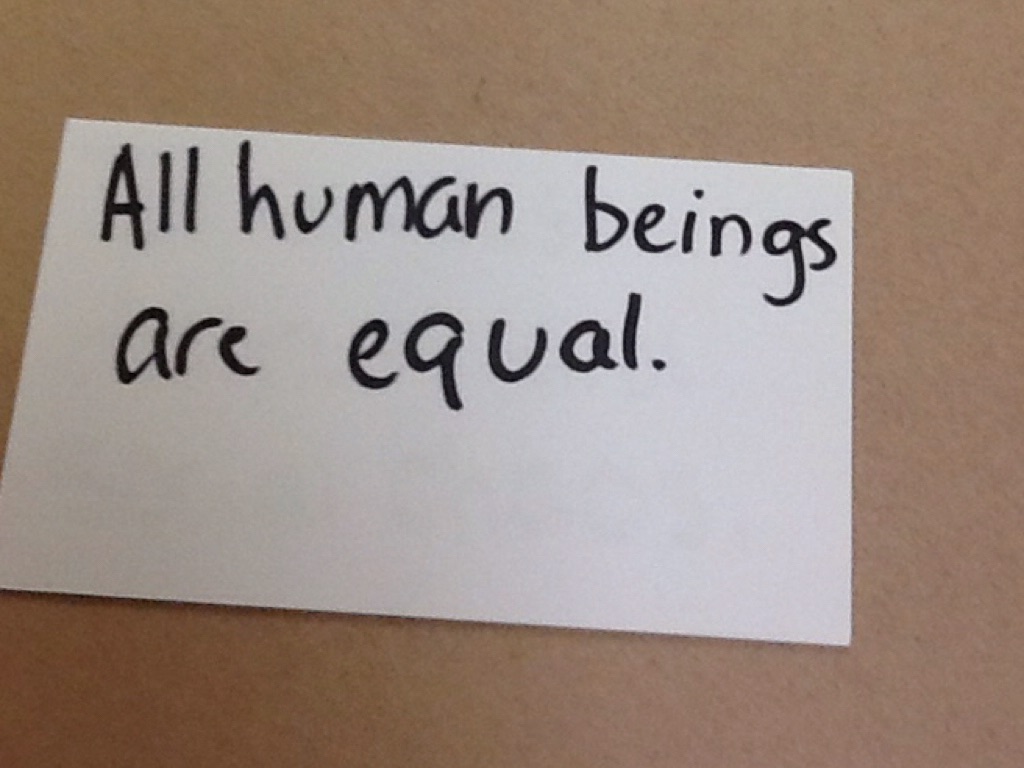 All human beings
are equal.